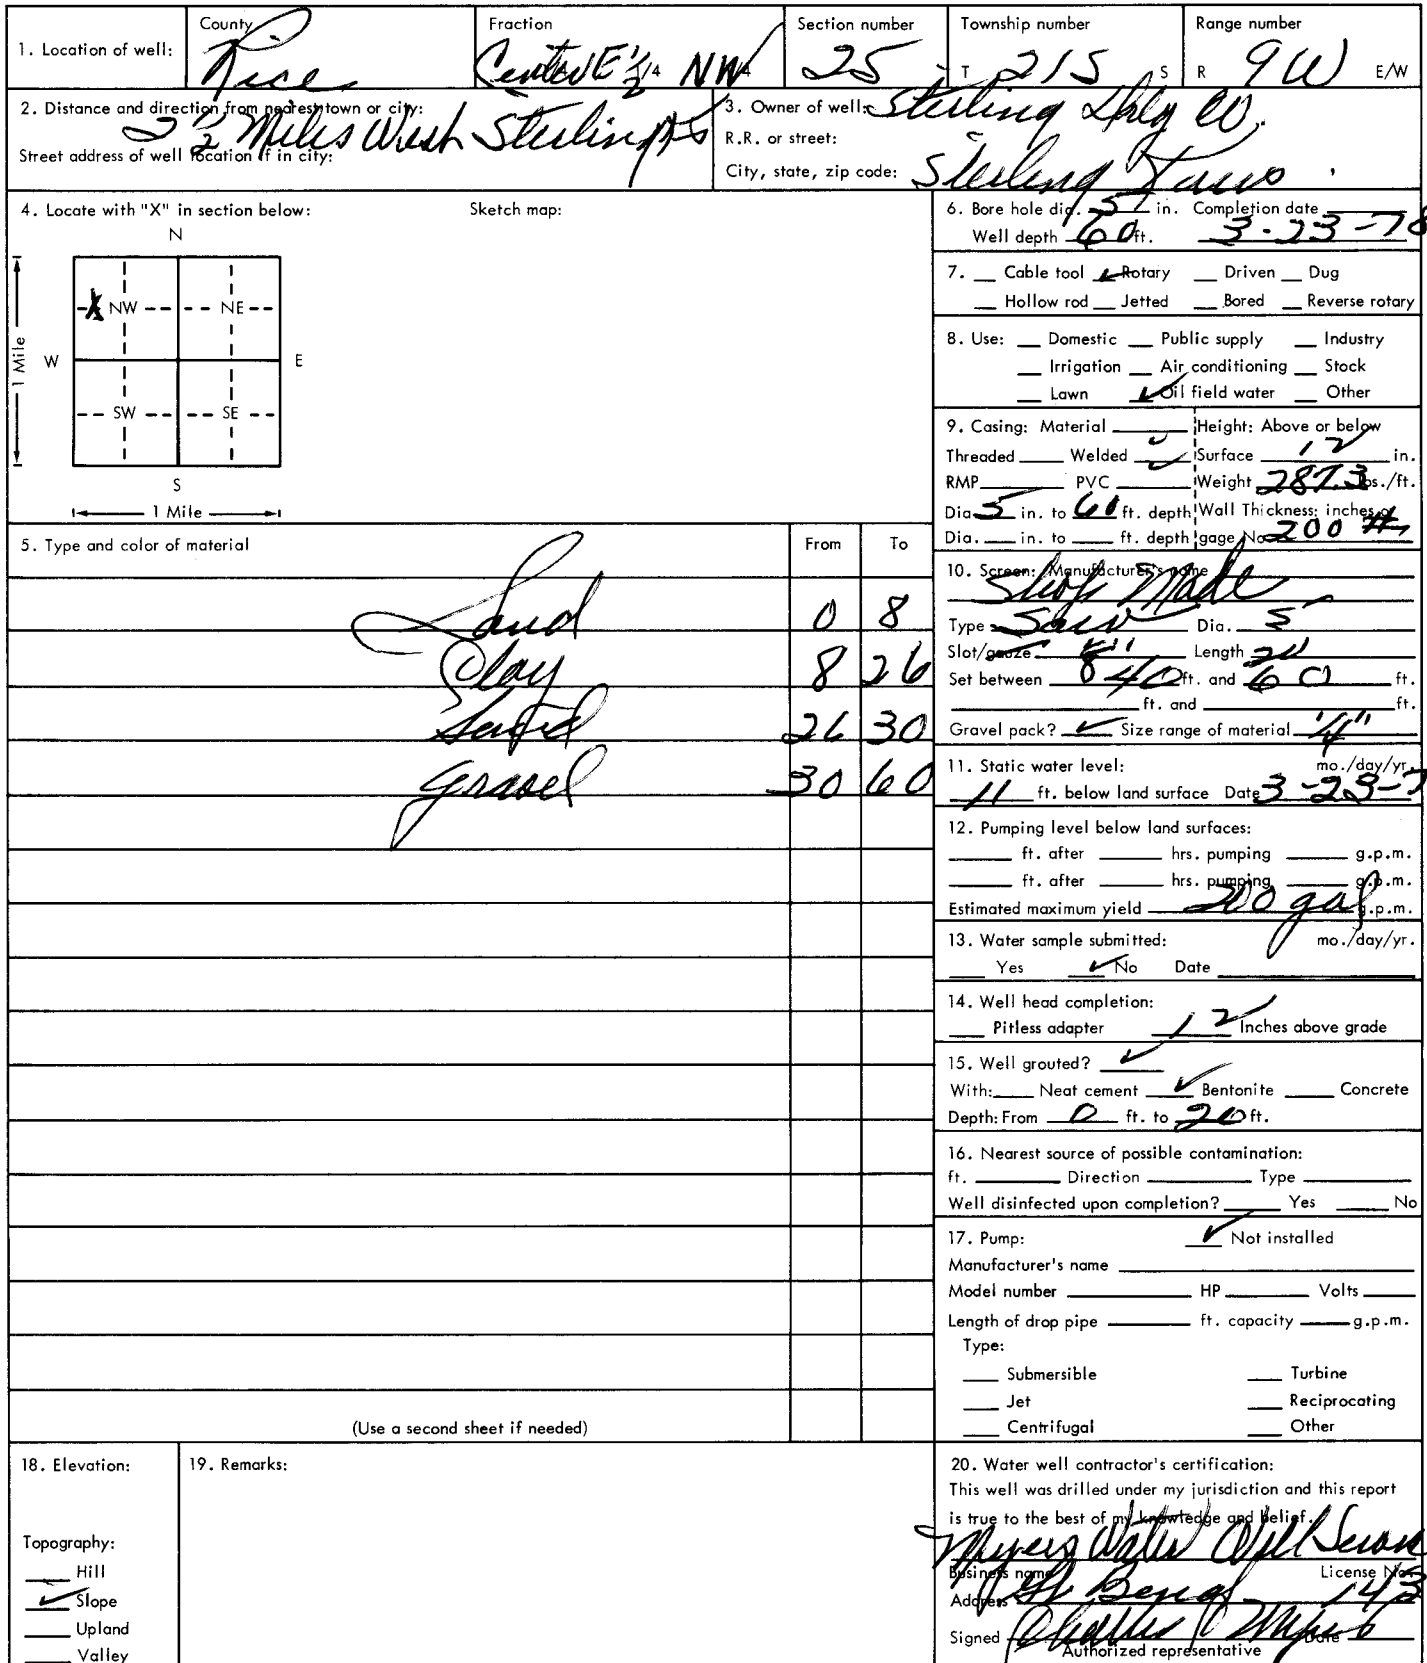 1. Location of well: County Rice Fraction Center E 1/2 1/4 NW 1/4 Section number 25 Township number T 21S S Range number R 9W E/W
2. Distance and direction from nearest town or city: 2 1/2 Miles West Sterling Ks
Street address of well location if in city:
3. Owner of well: Sterling Drlg Co.
R.R. or street:
City, state, zip code: Sterling Kans.
4. Locate with "X" in section below: Sketch map:
N
X NW NE
W E
1 Mile
SW SE
S
1 Mile
5. Type and color of material From To
Sand 0 8
Clay 8 26
Sand 26 30
Gravel 30 60
(Use a second sheet if needed)
6. Bore hole dia. 5 in. Completion date
Well depth 60 ft. 3-23-78
7. Cable tool ✓ Rotary Driven Dug
Hollow rod Jetted Bored Reverse rotary
8. Use: Domestic Public supply Industry
Irrigation Air conditioning Stock
Lawn ✓ Oil field water Other
9. Casing: Material Height: Above or below
Threaded Welded ✓ Surface 12 in.
RMP PVC ✓ Weight 287.3 lbs./ft.
Dia. 5 in. to 60 ft. depth Wall Thickness: inches or
Dia. in. to ft. depth gage No. 200 #
10. Screen: Manufacturer's name
Shop Made
Type Saw Dia. 5
Slot/gauze Length 20
Set between 40 ft. and 60 ft.
ft. and ft.
Gravel pack? ✓ Size range of material 1/4"
11. Static water level: mo./day/yr.
11 ft. below land surface Date 3-23-7
12. Pumping level below land surfaces:
ft. after hrs. pumping g.p.m.
ft. after hrs. pumping g.p.m.
Estimated maximum yield 200 gal g.p.m.
13. Water sample submitted: mo./day/yr.
Yes ✓ No Date
14. Well head completion:
Pitless adapter 12 Inches above grade
15. Well grouted? ✓
With: Neat cement ✓ Bentonite Concrete
Depth: From 0 ft. to 20 ft.
16. Nearest source of possible contamination:
ft. Direction Type
Well disinfected upon completion? Yes No
17. Pump: ✓ Not installed
Manufacturer's name
Model number HP Volts
Length of drop pipe ft. capacity g.p.m.
Type:
Submersible Turbine
Jet Reciprocating
Centrifugal Other
18. Elevation:
Topography:
Hill
✓ Slope
Upland
Valley
19. Remarks:
20. Water well contractor's certification:
This well was drilled under my jurisdiction and this report
is true to the best of my knowledge and belief.
Myers Water Well
Business name License No.
Address Gt Bend 143
Signed Charles Myers Date
Authorized representative